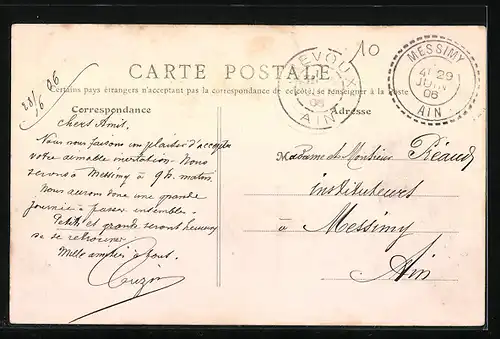 10
TREVOUX
06
AIN
MESSIMY
4E 29
JUIN
06
AIN
CARTE POSTALE
Certains pays étrangers n'acceptant pas la correspondance de ce côté, se renseigner à la poste
28/6 06
Correspondance
Adresse
Chers Amis.
Nous nous faisons un plaisir d'accepter
votre aimable invitation - Nous
serons à Messimy à 9h. matin.
Nous aurons donc une grande
journée à passer ensemble.
Petits et grands seront heureux
de se retrouver
Mille amitiés à tout.
Madame et Monsieur
instituteurs
à Messimy
Ain